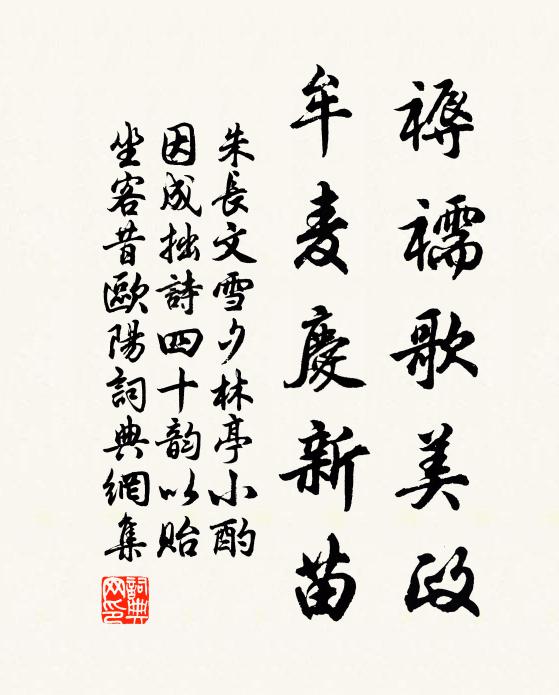 褥襦歌美政
牟麦慶新苗
朱長文雪夕林亭小酌
因成拙詩四十韵以貽
坐客昔歐陽詞典網集
詞典網印